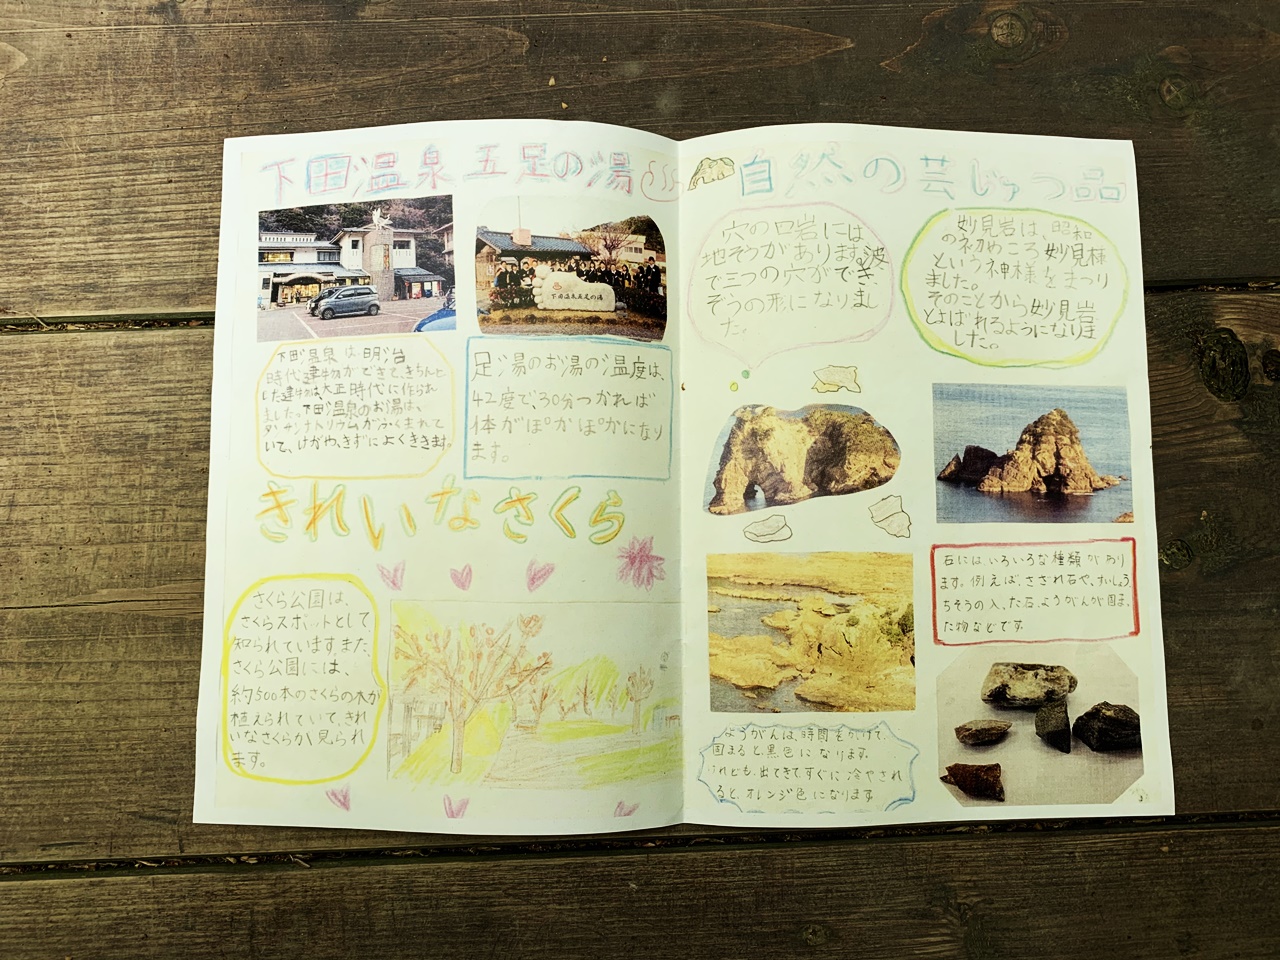 下田温泉 五足の湯
下田温泉は、明治
時代建物ができて、きちんと
した建物は、大正時代に作られ
ました。下田温泉のお湯は、
ナトリウムがふくまれて
いて、けがや、きずによくききます。
下田温泉五足の湯
足湯のお湯の温度は、
42度で、30分つかれば
体がぽかぽかになり
ます。
きれいなさくら
さくら公園は、
さくらスポットとして
知られています。また、
さくら公園には、
約500本のさくらの木が
植えられていて、きれ
いなさくらが見られ
ます。
自然の芸じゅつ品
穴の口岩には
地そうがあります。波
で二つの穴ができ、
ぞうの形になりまし
た。
妙見岩は、昭和
の初めころ妙見様
という神様をまつり
ました。
そのことから妙見岩
とよばれるようになりま
した。
石には、いろいろな種類があり
ます。例えば、さざれ石や、たいしょう
ちそうの入った石、ようがんが固まっ
た物などです
ようがんは、時間をかけて、
固まると、黒色になります。
けれども、出てきて、すぐに冷やされ
ると、オレンジ色になります